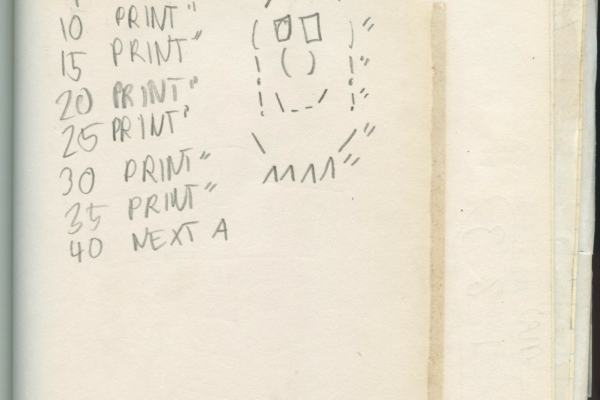 10 PRINT" ( [] [] )"
15 PRINT" ! ( ) !"
20 PRINT" ! \_ _/ !"
25 PRINT"
30 PRINT" \ /"
35 PRINT" ^^^^"
40 NEXT A